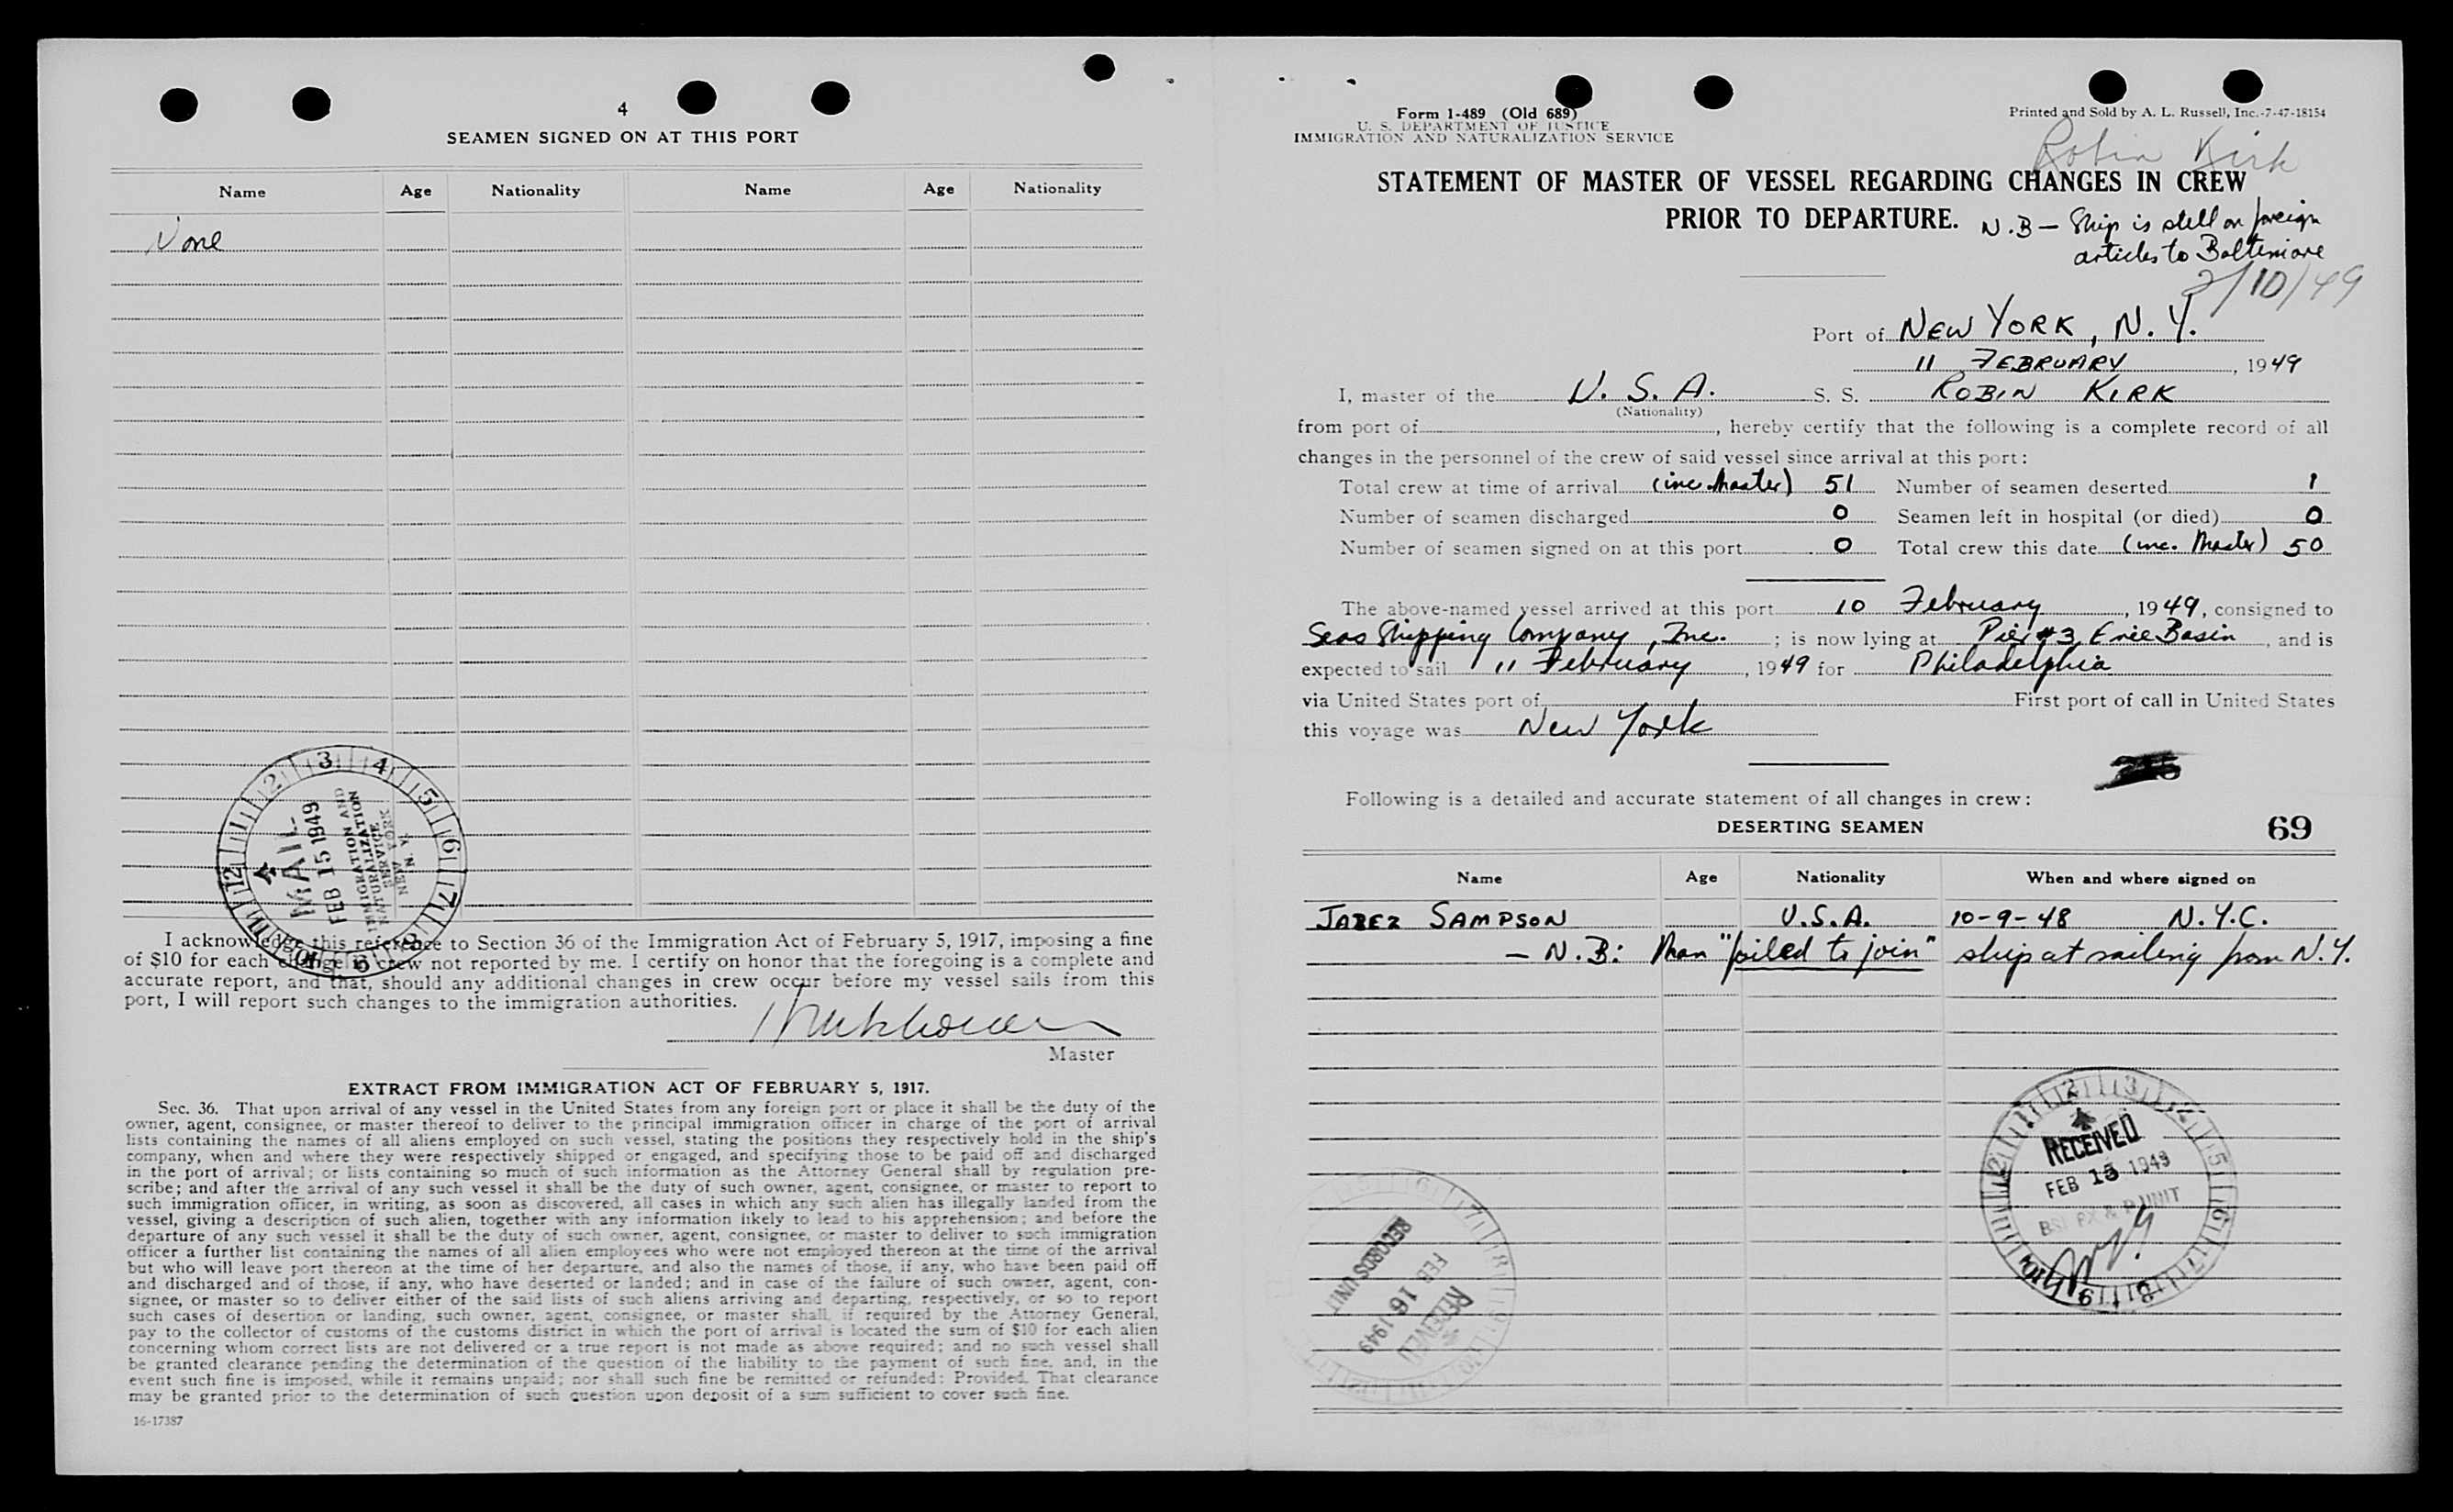 4
SEAMEN SIGNED ON AT THIS PORT
Name Age Nationality Name Age Nationality
None
MAIL
FEB 15 1949
IMMIGRATION AND
NATURALIZATION
SERVICE
NEW YORK
N. Y.
I acknowledge this reference to Section 36 of the Immigration Act of February 5, 1917, imposing a fine
of $10 for each change in crew not reported by me. I certify on honor that the foregoing is a complete and
accurate report, and that, should any additional changes in crew occur before my vessel sails from this
port, I will report such changes to the immigration authorities.
Master
EXTRACT FROM IMMIGRATION ACT OF FEBRUARY 5, 1917.
Sec. 36. That upon arrival of any vessel in the United States from any foreign port or place it shall be the duty of the
owner, agent, consignee, or master thereof to deliver to the principal immigration officer in charge of the port of arrival
lists containing the names of all aliens employed on such vessel, stating the positions they respectively hold in the ship's
company, when and where they were respectively shipped or engaged, and specifying those to be paid off and discharged
in the port of arrival; or lists containing so much of such information as the Attorney General shall by regulation pre-
scribe; and after the arrival of any such vessel it shall be the duty of such owner, agent, consignee, or master to report to
such immigration officer, in writing, as soon as discovered, all cases in which any such alien has illegally landed from the
vessel, giving a description of such alien, together with any information likely to lead to his apprehension; and before the
departure of any such vessel it shall be the duty of such owner, agent, consignee, or master to deliver to such immigration
officer a further list containing the names of all alien employees who were not employed thereon at the time of the arrival
but who will leave port thereon at the time of her departure, and also the names of those, if any, who have been paid off
and discharged and of those, if any, who have deserted or landed; and in case of the failure of such owner, agent, con-
signee, or master so to deliver either of the said lists of such aliens arriving and departing, respectively, or so to report
such cases of desertion or landing, such owner, agent, consignee, or master shall, if required by the Attorney General,
pay to the collector of customs of the customs district in which the port of arrival is located the sum of $10 for each alien
concerning whom correct lists are not delivered or a true report is not made as above required; and no such vessel shall
be granted clearance pending the determination of the question of the liability to the payment of such fine, and, in the
event such fine is imposed, while it remains unpaid; nor shall such fine be remitted or refunded: Provided, That clearance
may be granted prior to the determination of such question upon deposit of a sum sufficient to cover such fine.
16-17387
Form 1-489 (Old 689)
U. S. DEPARTMENT OF JUSTICE
IMMIGRATION AND NATURALIZATION SERVICE
Printed and Sold by A. L. Russell, Inc.-7-47-18154
Robin Kirk
STATEMENT OF MASTER OF VESSEL REGARDING CHANGES IN CREW
PRIOR TO DEPARTURE.
N.B — Ship is still on foreign
articles to Baltimore
2/10/49
Port of NEW YORK, N. Y.
11 FEBRUARY, 1949
I, master of the U. S. A. S. S. ROBIN KIRK
(Nationality)
from port of , hereby certify that the following is a complete record of all
changes in the personnel of the crew of said vessel since arrival at this port:
Total crew at time of arrival (inc. Master) 51 Number of seamen deserted 1
Number of seamen discharged 0 Seamen left in hospital (or died) 0
Number of seamen signed on at this port 0 Total crew this date (inc. Master) 50
The above-named vessel arrived at this port 10 February, 1949, consigned to
Seas Shipping Company, Inc. ; is now lying at Pier #3 Erie Basin, and is
expected to sail 11 February, 1949 for Philadelphia
via United States port of First port of call in United States
this voyage was New York
Following is a detailed and accurate statement of all changes in crew:
DESERTING SEAMEN
69
Name Age Nationality When and where signed on
JABEZ SAMPSON U.S.A. 10-9-48 N.Y.C.
— N.B: Man "failed to join" ship at sailing from N.Y.
RECEIVED
FEB 15 1949
RECORDS UNIT
FEB 16 1949
RECEIVED